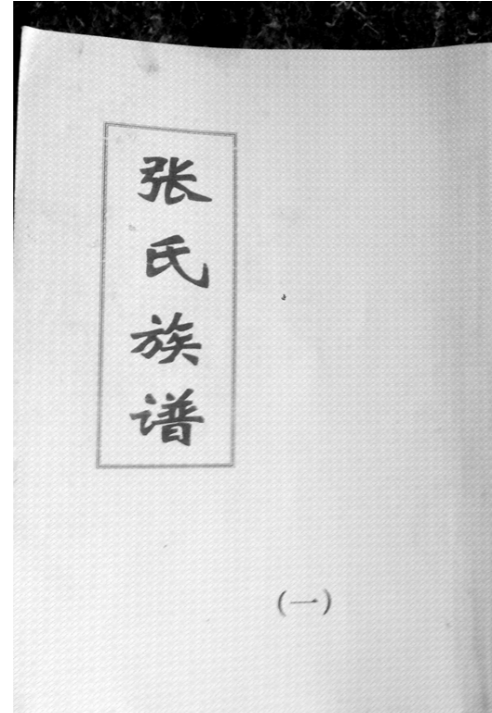 张氏族谱
(一)